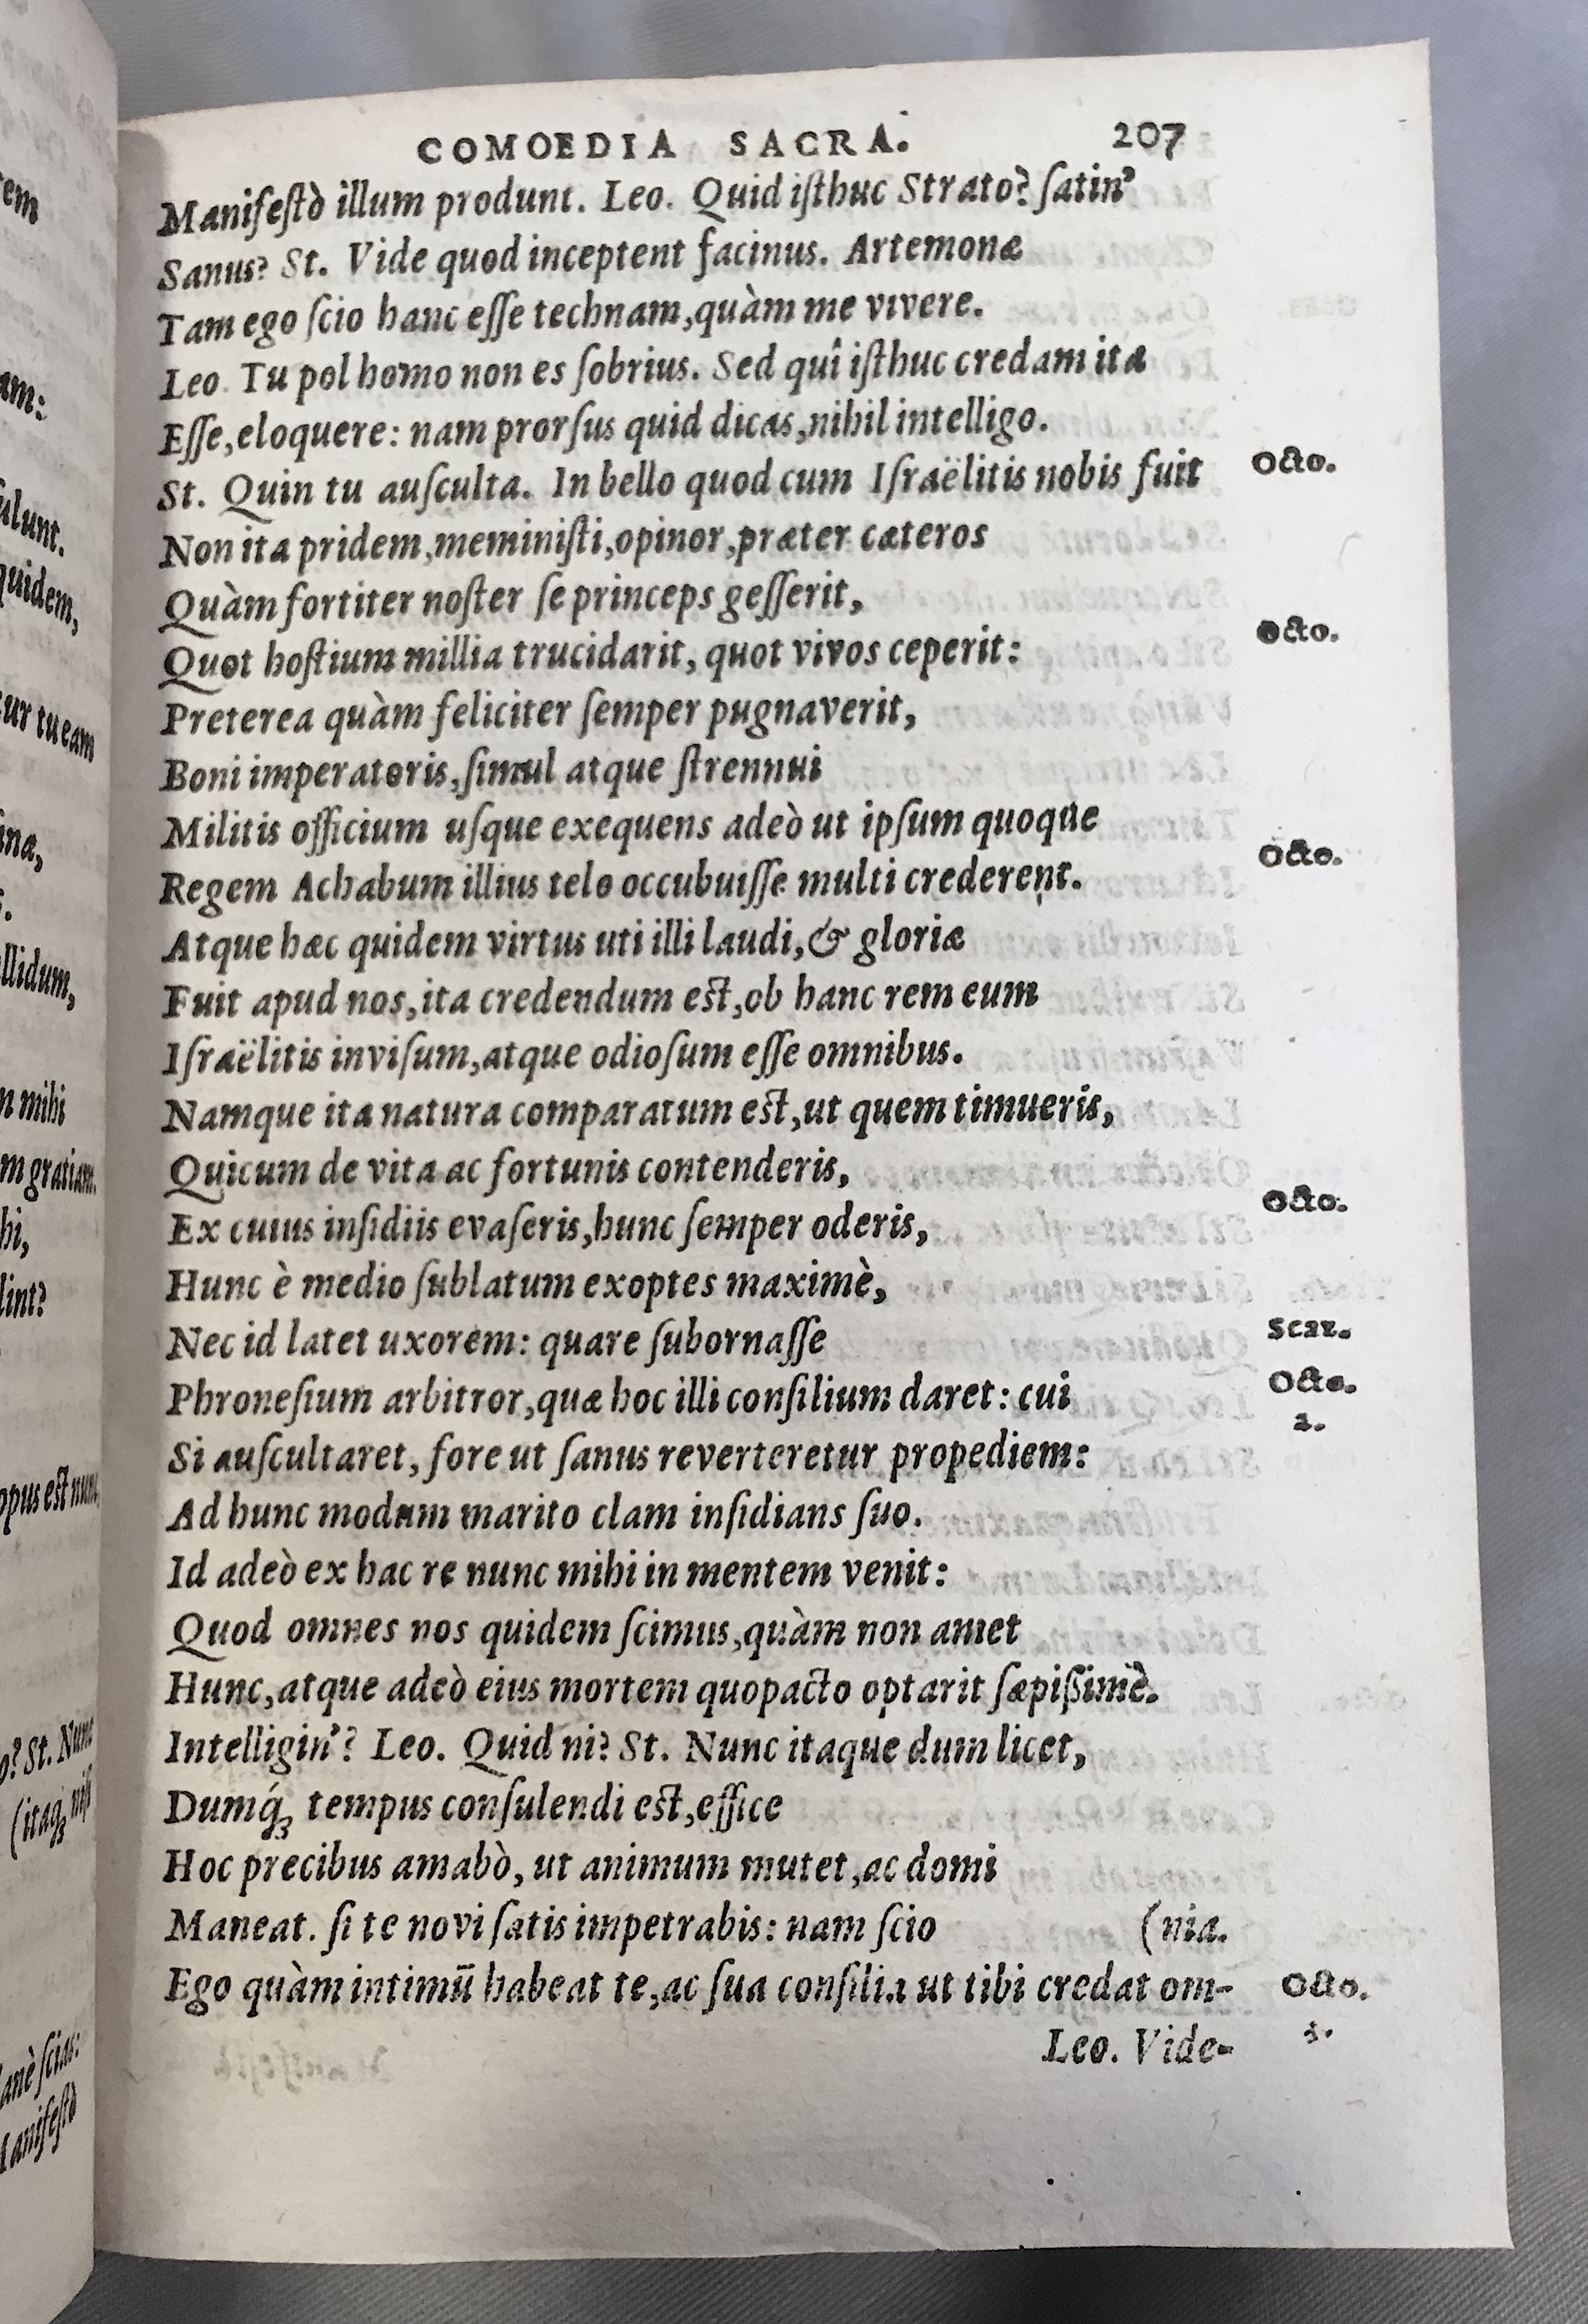 COMOEDIA SACRA. 207
Manifestò illum produnt. Leo. Quid isthuc Strato? satin'
Sanus? St. Vide quod inceptent facinus. Artemonæ
Tam ego scio hanc esse technam, quàm me vivere.
Leo. Tu pol homo non es sobrius. Sed quî isthuc credam ita
Esse, eloquere: nam prorsus quid dicas, nihil intelligo.
St. Quin tu ausculta. In bello quod cum Israëlitis nobis fuit Octo.
Non ita pridem, meministi, opinor, præter cæteros
Quàm fortiter noster se princeps gesserit,
Quot hostium millia trucidarit, quot vivos ceperit: Octo.
Preterea quàm feliciter semper pugnaverit,
Boni imperatoris, simul atque strennui
Militis officium usque exequens adeò ut ipsum quoque
Regem Achabum illius telo occubuisse multi crederent. Octo.
Atque hæc quidem virtus uti illi laudi, & gloriæ
Fuit apud nos, ita credendum est, ob hanc rem eum
Israëlitis invisum, atque odiosum esse omnibus.
Namque ita natura comparatum est, ut quem timueris,
Quicum de vita ac fortunis contenderis,
Ex cuius insidiis evaseris, hunc semper oderis, Octo.
Hunc è medio sublatum exoptes maximè,
Nec id latet uxorem: quare subornasse Scaz.
Phronesium arbitror, quæ hoc illi consilium daret: cui Octo.
2.
Si auscultaret, fore ut sanus reverteretur propediem:
Ad hunc modum marito clam insidians suo.
Id adeò ex hac re nunc mihi in mentem venit:
Quod omnes nos quidem scimus, quàm non amet
Hunc, atque adeò eius mortem quopacto optarit sæpißimè.
Intelligin'? Leo. Quid ni? St. Nunc itaque dum licet,
Dumq́ꝫ tempus consulendi est, effice
Hoc precibus amabò, ut animum mutet, ac domi
Maneat. si te novi satis impetrabis: nam scio (nia.
Ego quàm intimū habeat te, ac sua consilia ut tibi credat om- Octo.
Leo. Vide-